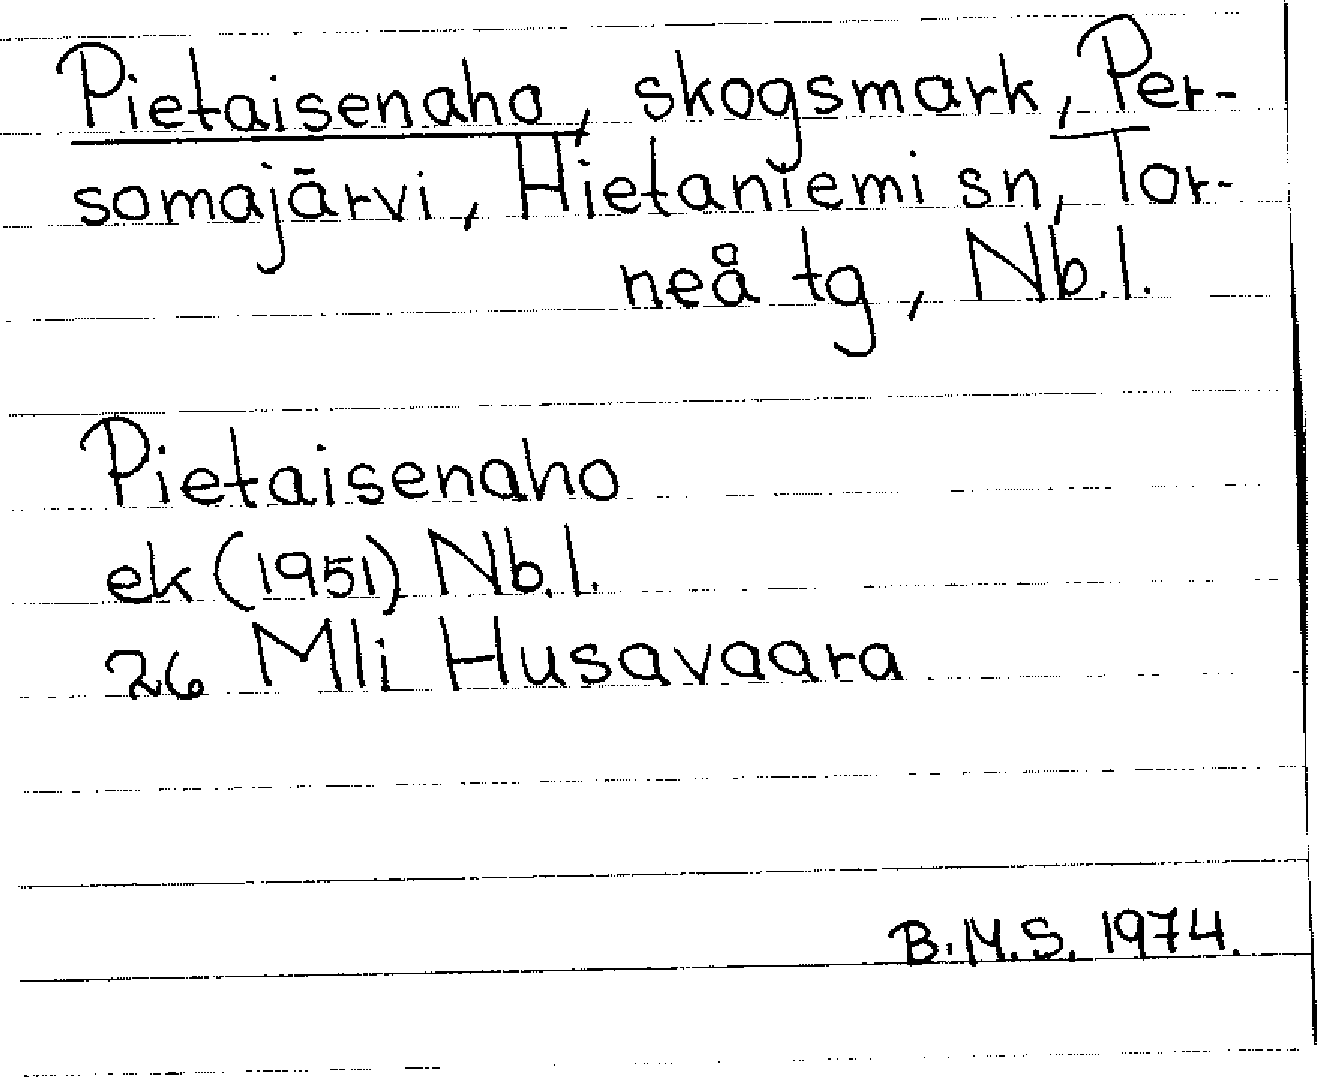 Pietaisenaho, skogsmark, Per-
somajärvi, Hietaniemi sn, Tor-
neå tg, Nb.l.
Pietaisenaho
ek (1951) Nb.l.
26 Mli Husavaara
B.M.S. 1974.